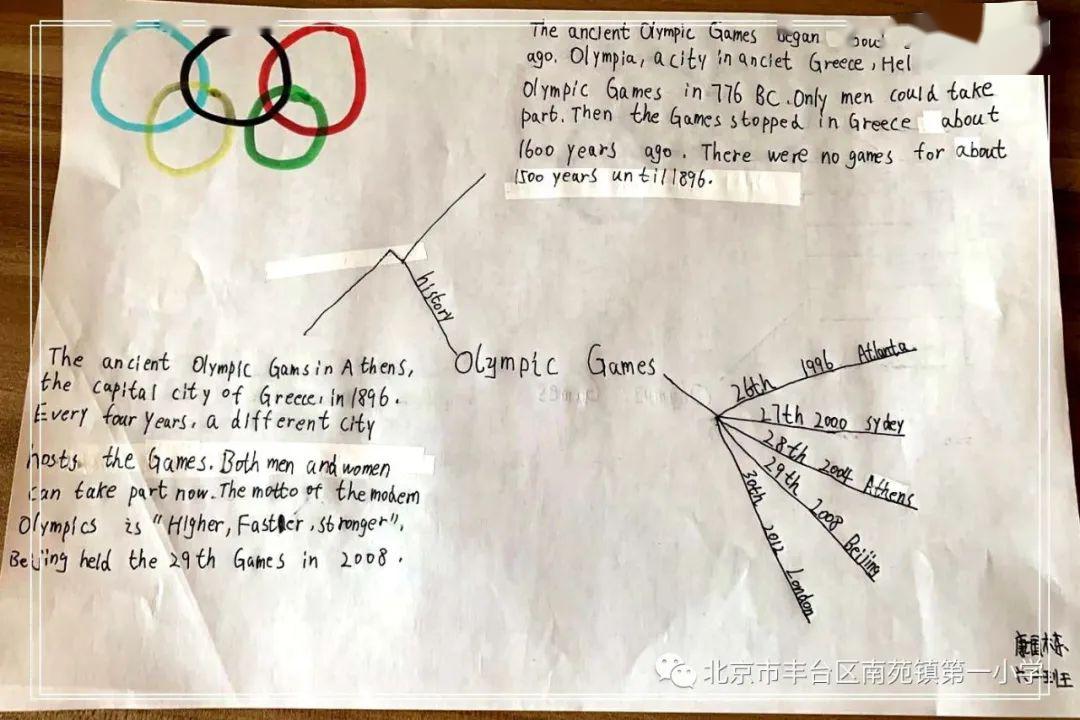 The ancient Olympic Games began
ago. Olympia, a city in anciet Greece, Hel
Olympic Games in 776 BC. Only men could take
part. Then the Games stopped in Greece about
1600 years ago. There were no games for about
1500 years until 1896.
history
Olympic Games
The ancient Olympic Gams in Athens,
the capital city of Greece, in 1896.
Every four years, a different city
hosts the Games. Both men and women
can take part now. The motto of the modem
Olympics is "Higher, Faster, stronger".
Beijing held the 29th Games in 2008.
26th 1996 Atlanta
27th 2000 sydey
28th 2004 Athens
29th 2008 Beijing
30th 2012 London
北京市丰台区南苑镇第一小学